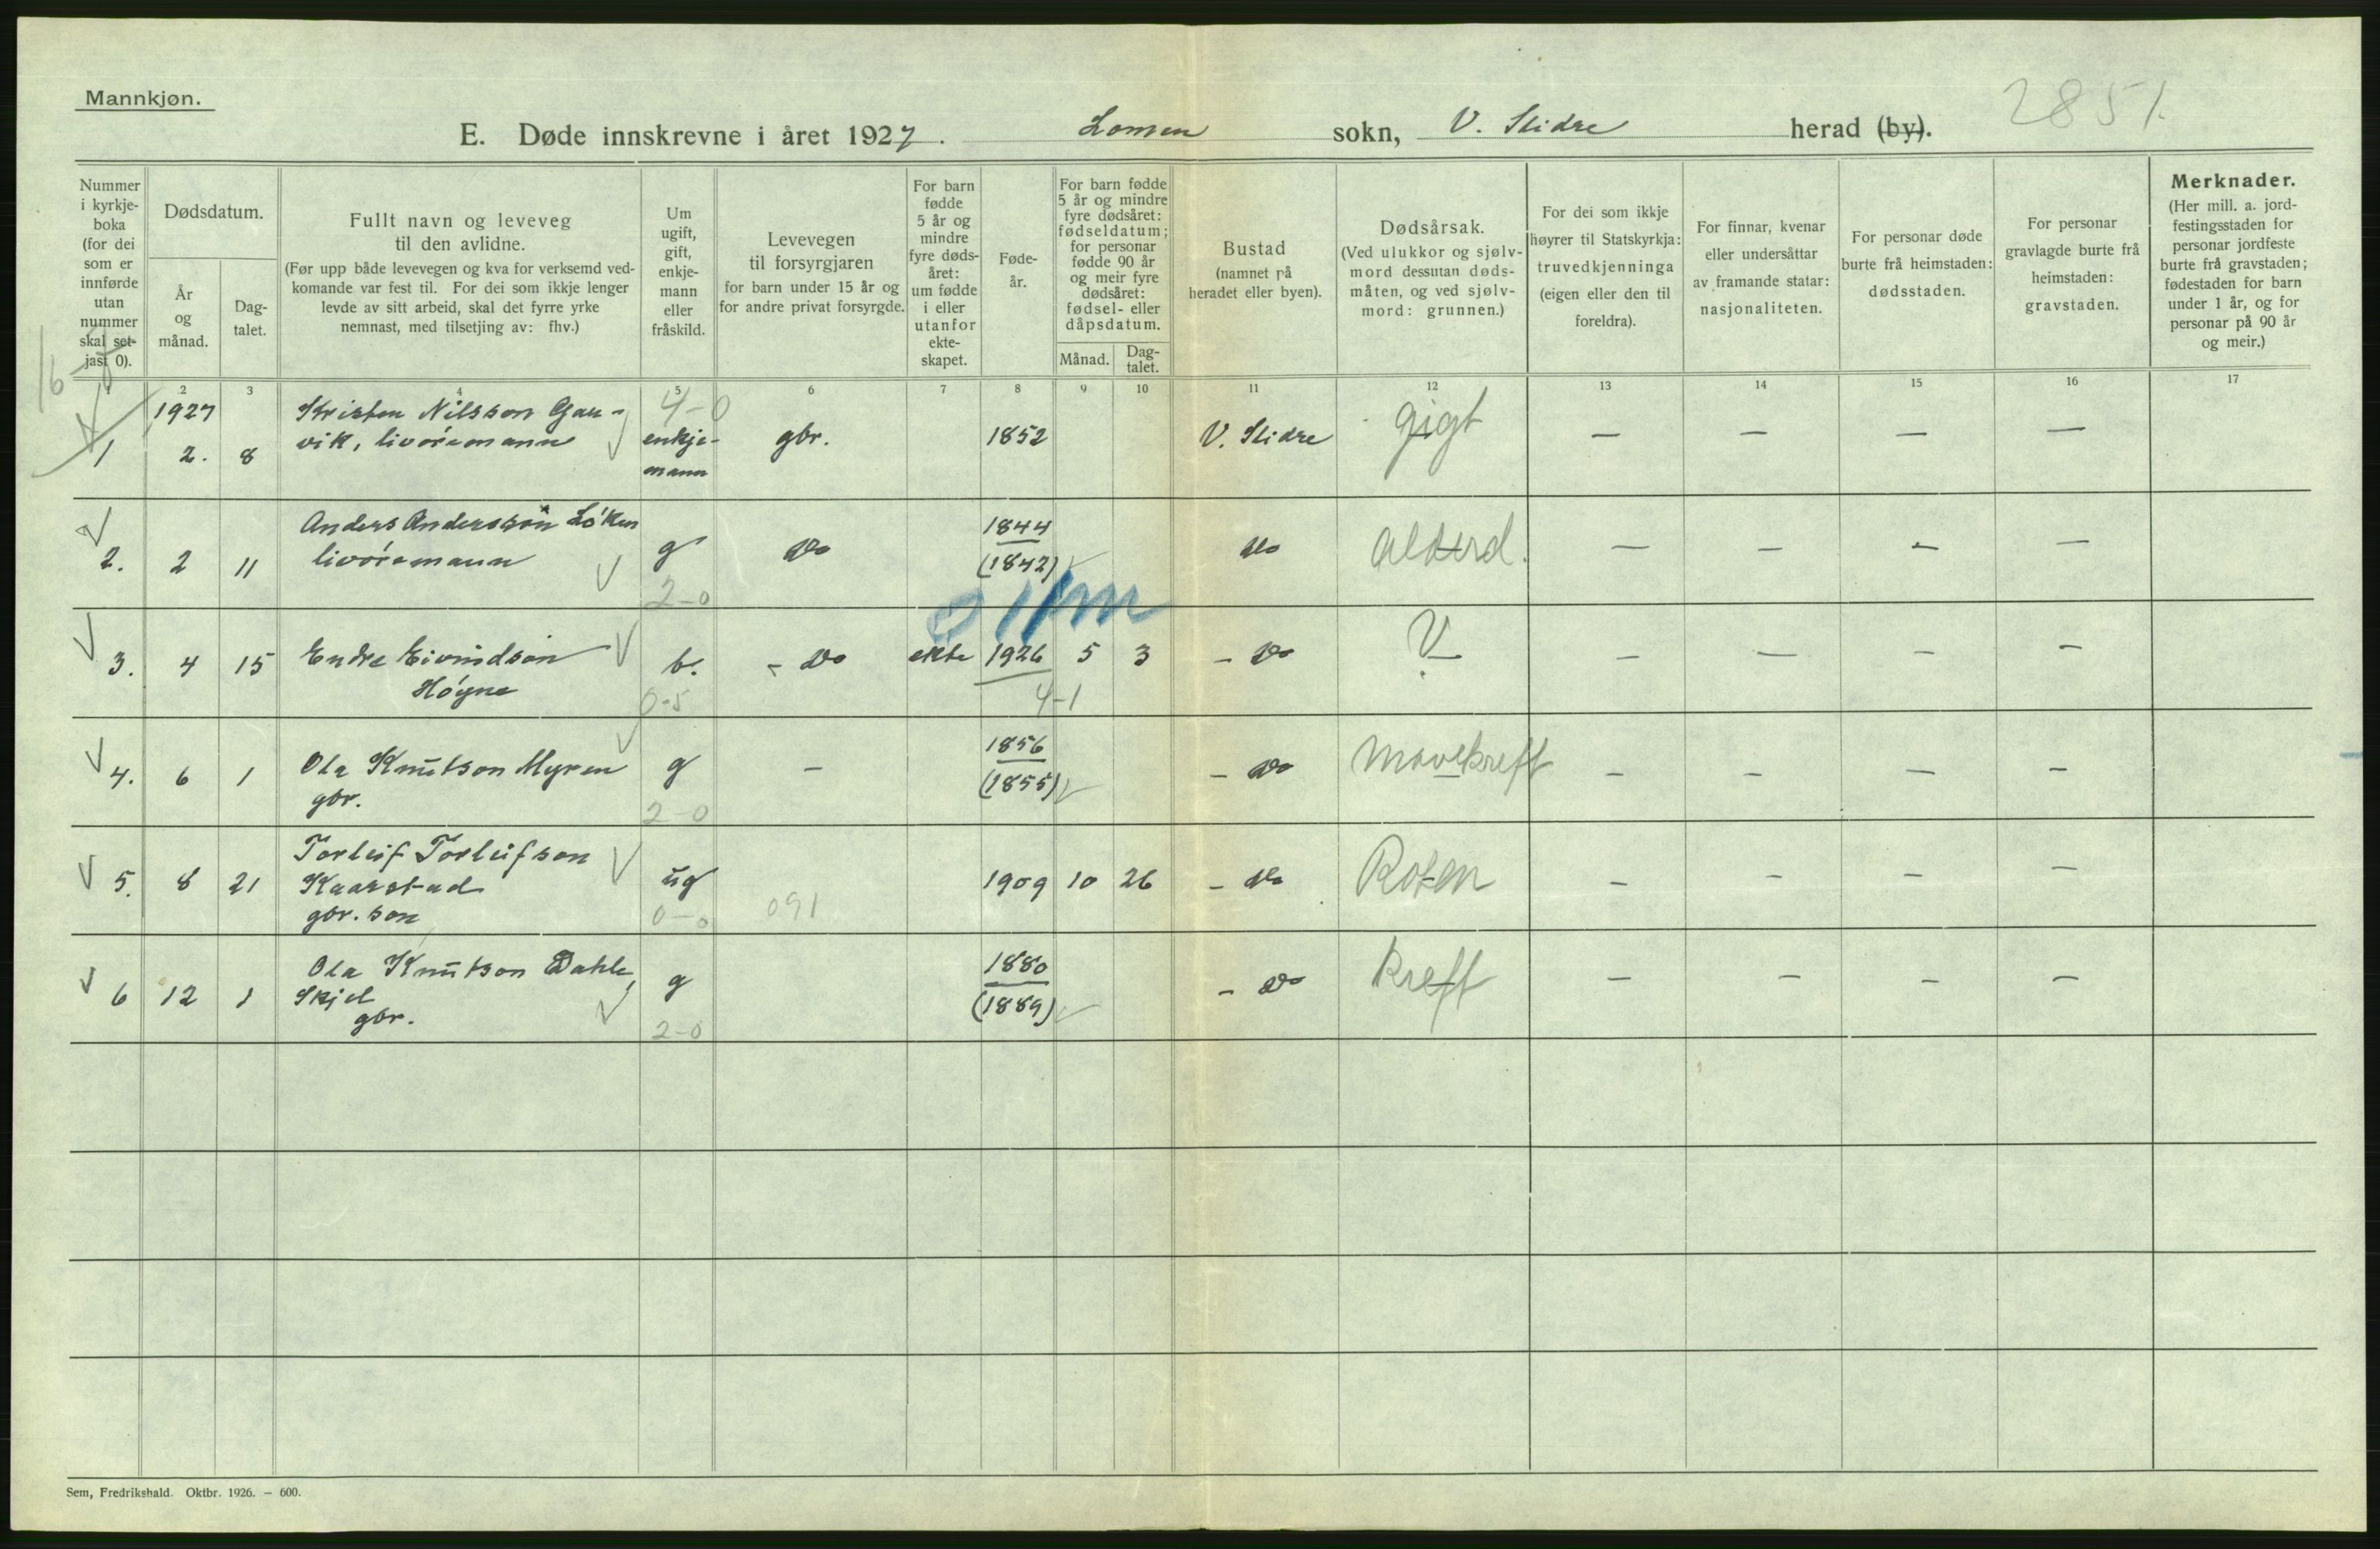 Mannkjøn.
2851.
E. Døde innskrevne i året 1927. Lomen sokn, V. Slidre herad (by).
Nummer
i kyrkje-
boka
(for dei
som er
innførde
utan
nummer
skal set-
jast 0).
Dødsdatum.
År
og
månad.
Dag-
talet.
Fullt navn og leveveg
til den avlidne.
(Før upp både levevegen og kva for verksemd ved-
komande var fest til. For dei som ikkje lenger
levde av sitt arbeid, skal det fyrre yrke
nemnast, med tilsetjing av: fhv.)
Um
ugift,
gift,
enkje-
mann
eller
fråskild.
Levevegen
til forsyrgjaren
for barn under 15 år og
for andre privat forsyrgde.
For barn
fødde
5 år og
mindre
fyre døds-
året:
um fødde
i eller
utanfor
ekte-
skapet.
Føde-
år.
For barn fødde
5 år og mindre
fyre dødsåret:
fødseldatum;
for personar
fødde 90 år
og meir fyre
dødsåret:
fødsel- eller
dåpsdatum.
Månad.
Dag-
talet.
Bustad
(namnet på
heradet eller byen).
Dødsårsak.
(Ved ulukkor og sjølv-
mord dessutan døds-
måten, og ved sjølv-
mord: grunnen.)
For dei som ikkje
høyrer til Statskyrkja:
truvedkjenninga
(eigen eller den til
foreldra).
For finnar, kvenar
eller undersåttar
av framande statar:
nasjonaliteten.
For personar døde
burte frå heimstaden:
dødsstaden.
For personar
gravlagde burte frå
heimstaden:
gravstaden.
Merknader.
(Her mill. a. jord-
festingsstaden for
personar jordfeste
burte frå gravstaden;
fødestaden for barn
under 1 år, og for
personar på 90 år
og meir.)
1 2 3 4 5 6 7 8 9 10 11 12 13 14 15 16 17
16
1927 Kristen Nilsson Gau- 4-0
1 2. 8 vik, livøremann enkje- gbr. 1852 V. Slidre gigt — — — —
mann
Anders Andersson Löken 1844
2. 2 11 livøremann g do (1842) do alderd. — — — —
2-0
3. 4 15 Endre Eivindson b. - do ekte 1926 5 3 - do V — — — —
Høyne 0-5 4-1
1856
4. 6 1 Ola Knutson Myren g — (1855) - do Mavekreft — — — —
gbr. 2-0
Torleif Torleifson
5. 8 21 Kaarstad ug 1909 10 26 - do Rosen — — — —
gbr. son 0-0 091
Ola Knutson Dahle, 1880
6 12 1 Skjel g (1889) - do kreft — — — —
gbr. 2-0
Sem, Fredrikshald. Oktbr. 1926. — 600.